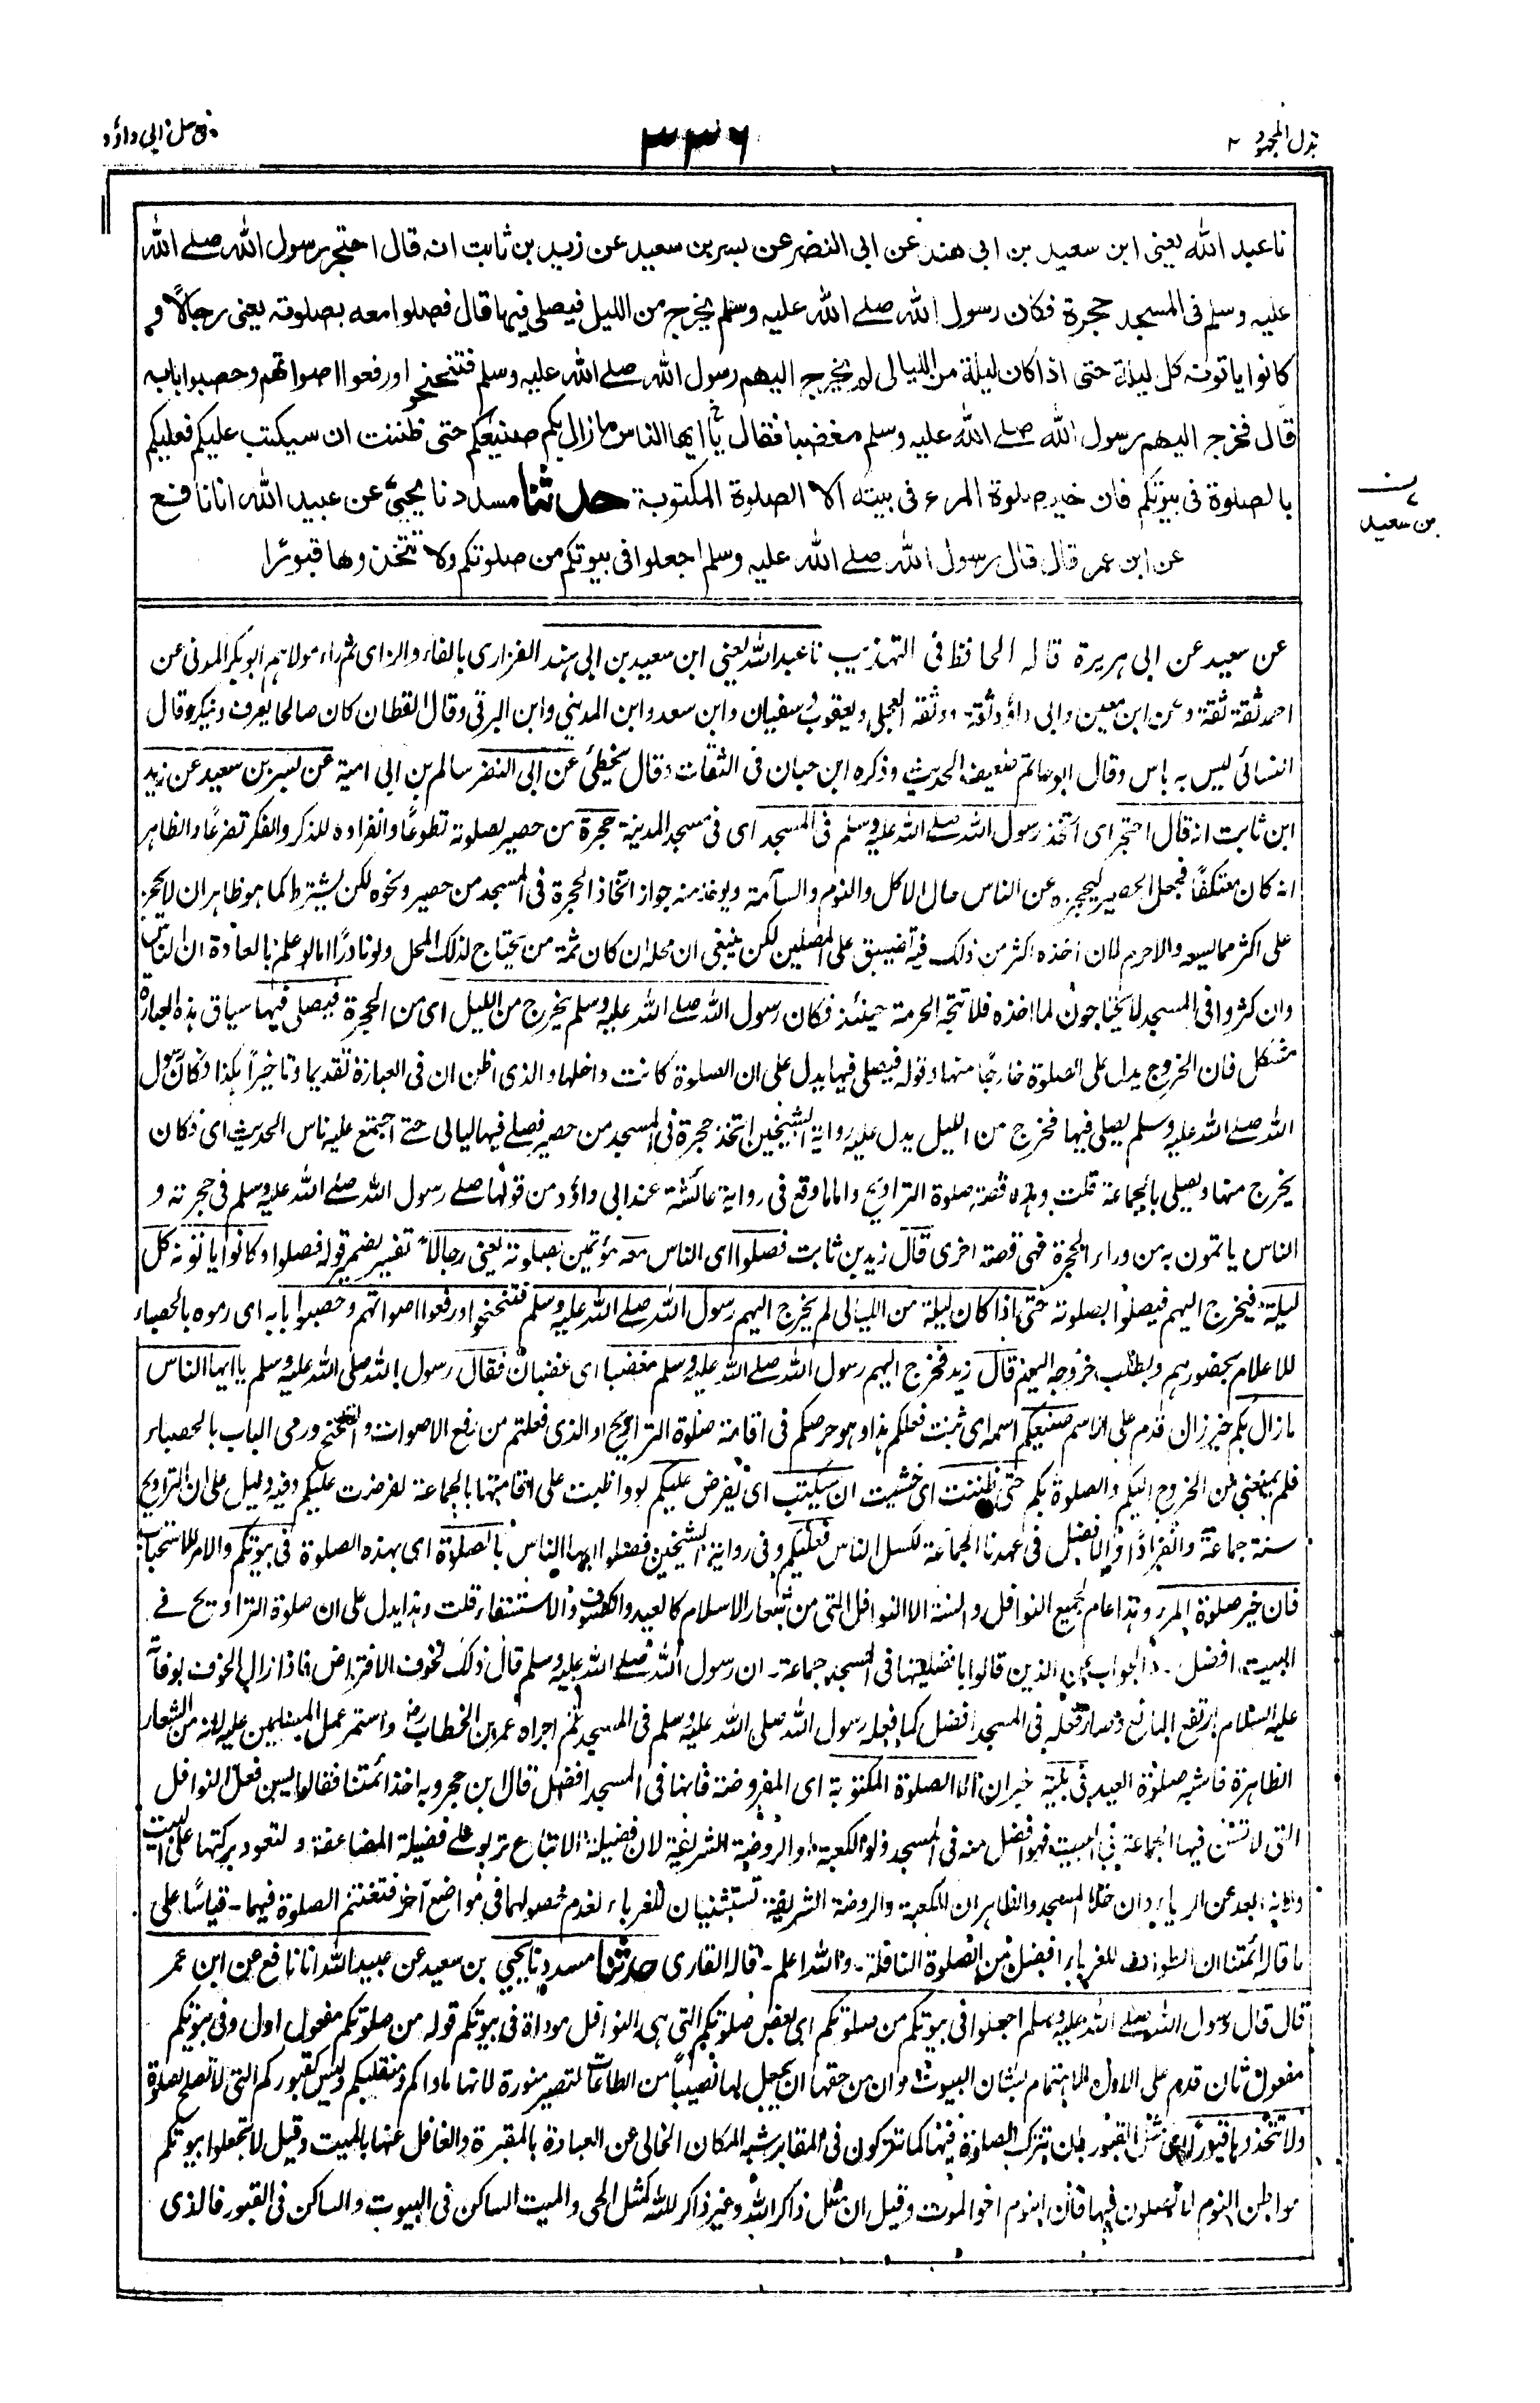 بذل المجهود ٢
٣٣٦
في حل ابي داؤد
نا عبد الله يعنى ابن سعيد بن ابى هند عن ابى النضر عن بسر بن سعيد عن زيد بن ثابت انه قال احتجر رسول الله صلے الله
عليه وسلم فى المسجد حجرة فكان رسول الله صلے الله عليه وسلم يخرج من الليل فيصلى فيها قال فصلوا معه بصلوته يعنى رجالًا و
كانوا ياتونه كل ليلة حتى اذا كان ليلة من الليالى لم يخرج اليهم رسول الله صلے الله عليه وسلم فتنحنحوا ورفعوا اصواتهم وحصبوا بابه
قال فخرج اليهم رسول الله صلے الله عليه وسلم مغضبا فقال يا ايها الناس ما زال بكم صنيعكم حتى ظننت ان سيكتب عليكم فعليكم
بالصلوة فى بيوتكم فان خير صلوة المرء فى بيته الا الصلوة المكتوبة حدثنا مسدد نا يحيى عن عبيد الله انا نافع
ن بن سعيد
عن ابن عمر قال قال رسول الله صلے الله عليه وسلم اجعلوا فى بيوتكم من صلوتكم ولا تتخذوها قبورًا
عن سعيد عن ابى هريرة قاله الحافظ فى التهذيب نا عبد الله يعنى ابن سعيد بن ابى هند الفزارى بالفاء والزاى ثم راء مولاهم ابو بكر المدنى عن
احمد ثقة ثقة وعن ابن معين وابى داؤد ثقة ووثقه العجلى ويعقوب بن سفيان وابن سعد وابن المدينى وابن البرقى وقال القطان كان صالحا يعرف وينكر وقال
النسائى ليس به باس وقال ابو حاتم ضعيف الحديث وذكره ابن حبان فى الثقات وقال يخطئ عن ابى النضر سالم بن ابى امية عن بسر بن سعيد عن زيد
ابن ثابت انه قال احتجر اى اتخذ رسول الله صلے الله عليه وسلم فى المسجد اى فى مسجد المدينة حجرة من حصير لصلوته تطوعًا وانفراده للذكر والفكر تضرعًا والظاهر
انه كان معتكفًا فجعل الحصير ليحجزه عن الناس حال الاكل والنوم والسآمة ويوخذ منه جواز اتخاذ الحجرة فى المسجد من حصير ونحوه لكن يشترط كما هو ظاهر ان لا يحجز
على اكثر مما يسعه والا حرم لان اخذه اكثر من ذلك فيه تضييق على المصلين لكن ينبغى ان محله ان كان ثمة من يحتاج لذلك المحل ولو نادرًا اما لو علم بالعادة ان الناس
وان كثروا فى المسجد لا يحتاجون لما اخذه فلا تتجه الحرمة حينئذ فكان رسول الله صلے الله عليه وسلم يخرج من الليل اى من الحجرة فيصلى فيها سياق هذه العبارة
مشكل فان الخروج يدل على الصلوة خارجًا منها وقوله فيصلى فيها يدل على ان الصلوة كانت داخلها والذى اظن ان فى العبارة تقديما وتاخيرًا هكذا وكان رسول
الله صلے الله عليه وسلم يصلى فيها فخرج من الليل يدل عليه رواية الشيخين اتخذ حجرة فى المسجد من حصير فصلے فيها ليالى حتے اجتمع عليه ناس الحديث اى فكان
يخرج منها ويصلى بالجماعة قلت وهذه قصة صلوة التراويح واما ما وقع فى رواية عائشة عند ابى داؤد من قولها صلے رسول الله صلے الله عليه وسلم فى حجرته و
الناس ياتمون به من وراء الحجرة فهى قصة اخرى قال زيد بن ثابت فصلوا اى الناس معه مؤتمين بصلوته يعنى رجالًا تفسير لضمير قوله فصلوا وكانوا ياتونه كل
ليلة فيخرج اليهم فيصلوا بصلوته حتى اذا كان ليلة من الليالى لم يخرج اليهم رسول الله صلے الله عليه وسلم فتنحنحوا ورفعوا اصواتهم وحصبوا بابه اى رموه بالحصباء
للاعلام بحضورهم ويطلب خروجه اليهم قال زيد فخرج اليهم رسول الله صلے الله عليه وسلم مغضبا اى غضبان فقال رسول الله صلى الله عليه وسلم يا ايها الناس
ما زال بكم خبر زال قدم على الاسم صنيعكم اسمه اى ثبت فعلكم هذا وهو حرصكم فى اقامة صلوة التراويح او الذى فعلتم من رفع الاصوات والتنحنح ورمى الباب بالحصباء
فلم يمنعنى من الخروج اليكم والصلوة بكم حتى ظننت اى خشيت ان سيكتب اى يفرض عليكم لو واظبت على اقامتها بالجماعة لفرضت عليكم وفيه دليل على ان التراويح
سنة جماعة وانفرادًا والافضل فى عهدنا الجماعة لكسل الناس فعليكم وفى رواية الشيخين فصلوا ايها الناس بالصلوة اى بهذه الصلوة فى بيوتكم والامر للاستحباب
فان خير صلوة المرء وهذا عام لجميع النوافل والسنة الا النوافل التى من شعار الاسلام كالعيد والكسوف والاستسقاء قلت وهذا يدل على ان صلوة التراويح فے
البيت افضل - والجواب عن الذين قالوا بافضليتها فى المسجد جماعة - ان رسول الله صلے الله عليه وسلم قال ذلك لخوف الافتراض فاذا زال الخوف بوفاته
عليه السلام ارتفع المانع وصار فعله فى المسجد افضل كما فعله رسول الله صلى الله عليه وسلم فى المسجد ثم اجراه عمر بن الخطاب رض واستمر عمل المسلمين عليه لانه من الشعار
الظاهرة فاشبه صلوة العيد فى بيته خبر ان الا الصلوة المكتوبة اى المفروضة فانها فى المسجد افضل قال ابن حجر وبه اخذ ائمتنا فقالوا يسن فعل النوافل
التى لا تسن فيها الجماعة فى البيت فهو افضل منه فى المسجد ولو الكعبة او الروضة الشريفة لان فضيلة الاتباع تربو علے فضيلة المضاعفة ولتعود بركتها على البيت
ولانه ابعد عن الرياء وان خلا المسجد والظاهر ان الكعبة والروضة الشريفة تستثنيان للغرباء لعدم حصولهما فى مواضع آخر فتغتنم الصلوة فيهما - قياسًا على
ما قاله ائمتنا ان الطواف للغرباء افضل من الصلوة النافلة - والله اعلم - قاله القارى حدثنا مسدد نا يحيي بن سعيد عن عبيد الله انا نافع عن ابن عمر
قال قال رسول الله صلے الله عليه وسلم اجعلوا فى بيوتكم من صلوتكم اى بعض صلوتكم التى هى النوافل موداة فى بيوتكم قوله من صلوتكم مفعول اول وفى بيوتكم
مفعول ثان قدم على الاول للاهتمام بشان البيوت وان من حقها ان يجعل لها نصيبًا من الطاعات لتصير منورة لانها ماواكم ومنقلبكم وليس كقبوركم التى لا تصلح لصلوة
ولا تتخذوها قبورًا اى مثل القبور بان تترك الصلوة فيها كما تتركون فى المقابر شبه المكان الخالى عن العبادة بالمقبرة والغافل عنها بالميت وقيل لا تجعلوا بيوتكم
مواطن النوم لا تصلون فيها فان النوم اخو الموت وقيل ان مثل ذاكر الله وغير ذاكر لله كمثل الحى والميت الساكن فى البيوت والساكن فى القبور فالذى